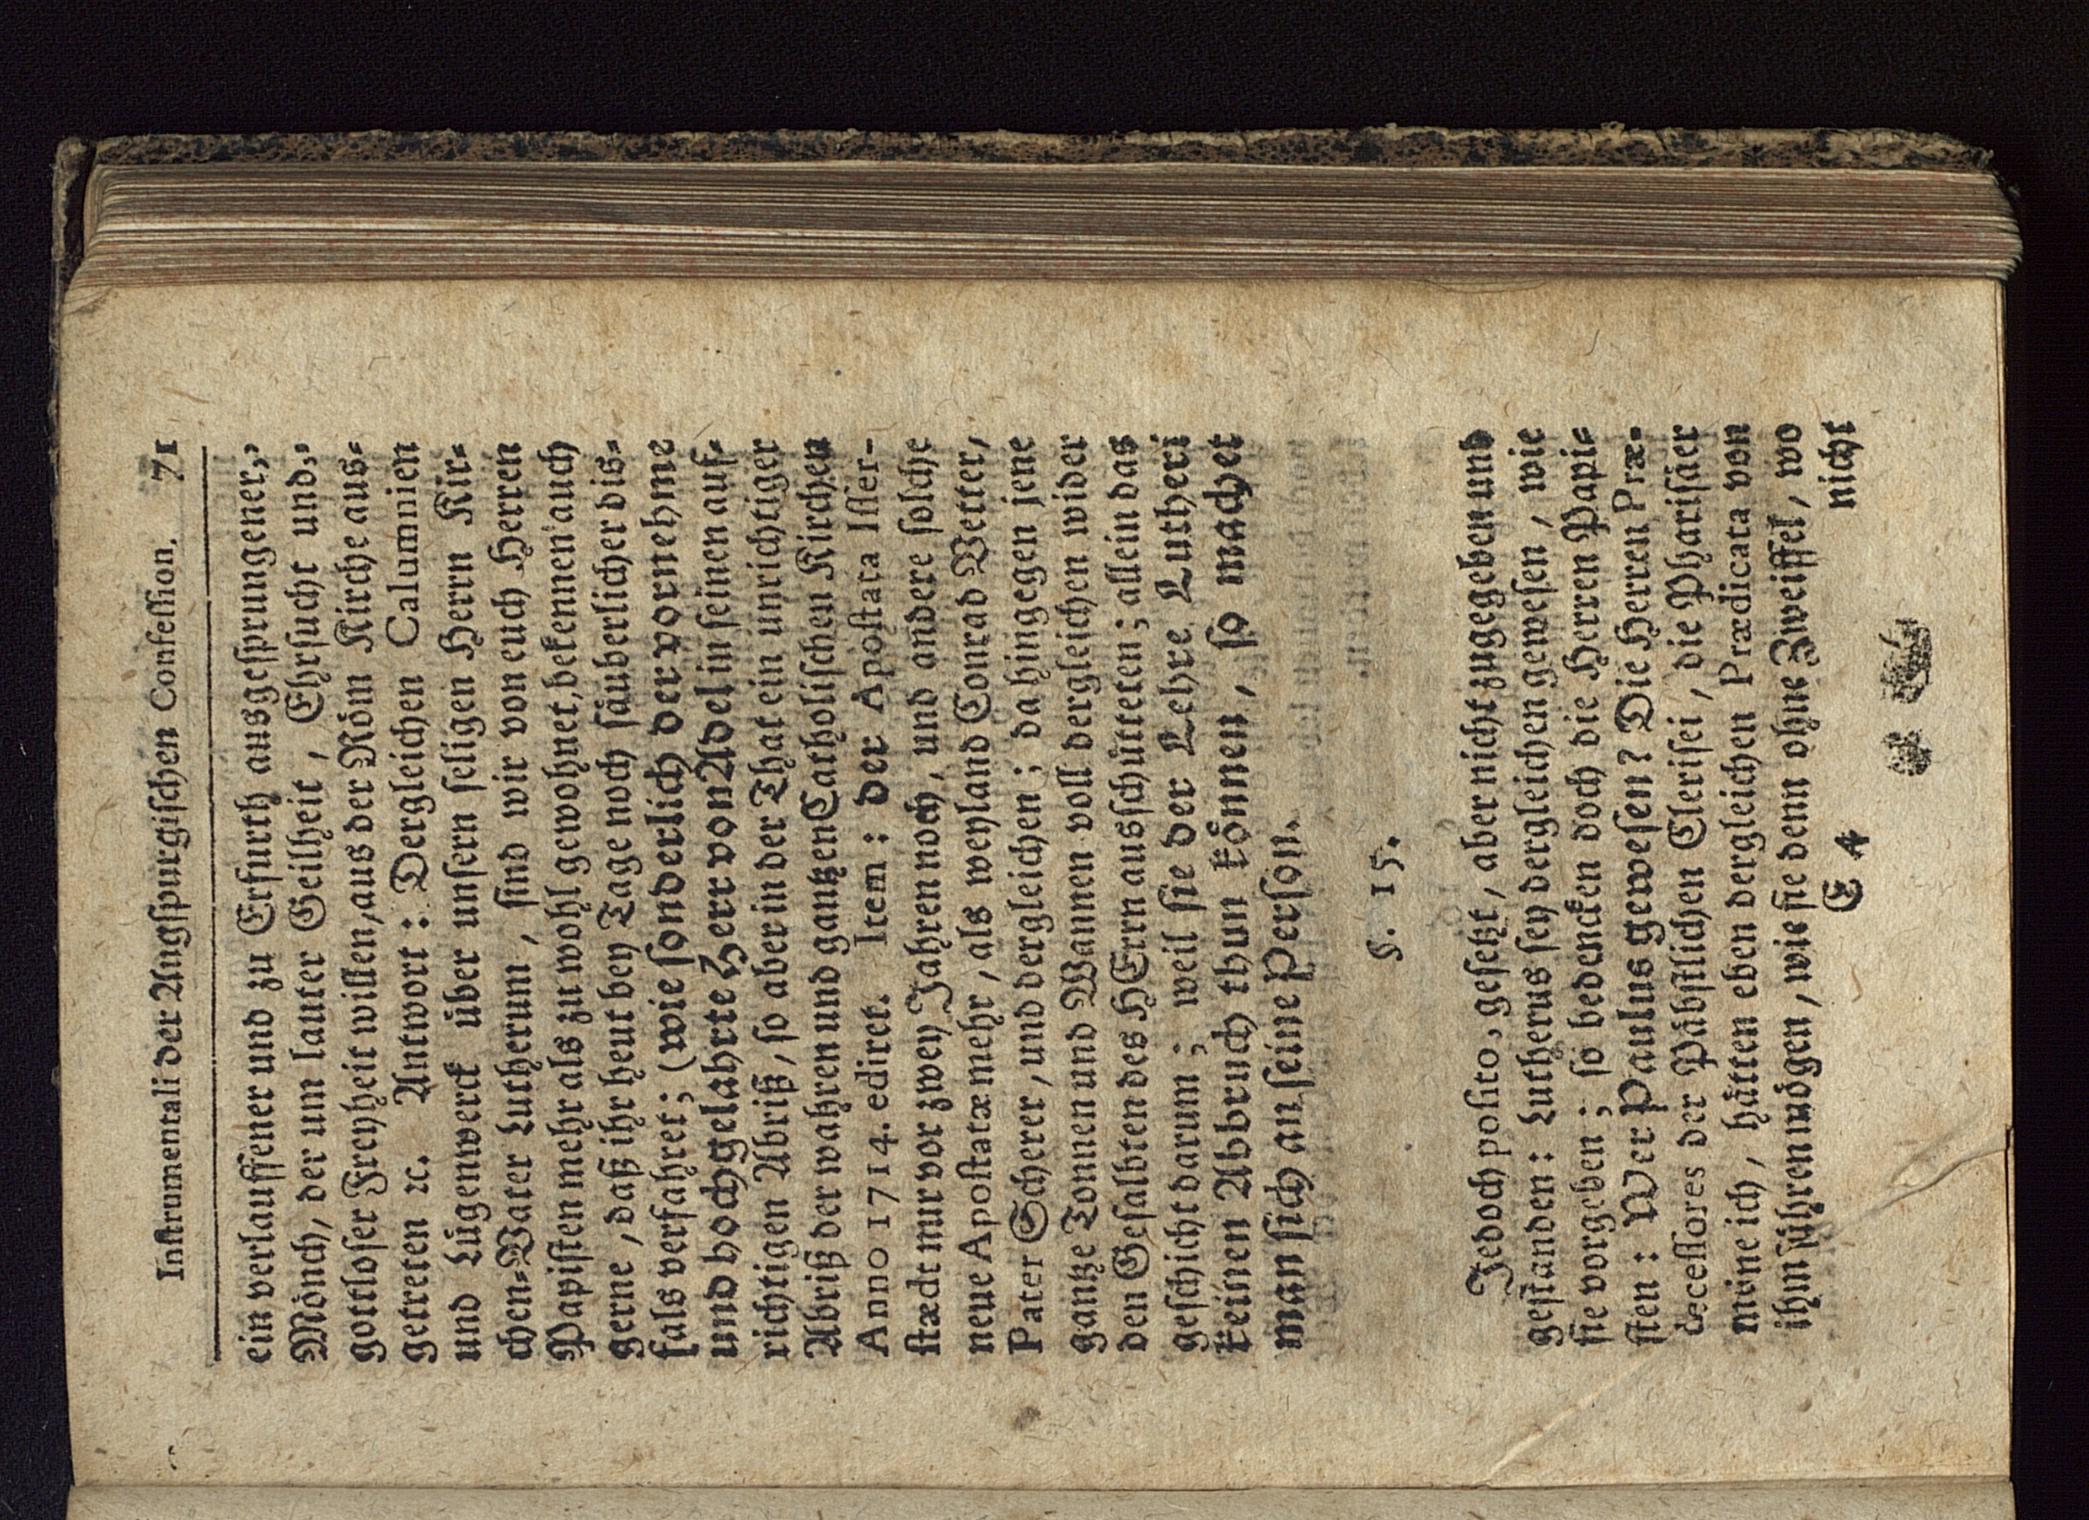 Inſtrumentali der Augſpurgiſchen Confeſſion. 71
ein verlauffener und zu Erfurth ausgeſprungener,,
Mönch, der um lauter Geilheit, Ehrſucht und,,
gottloſer Freyheit willen, aus der Röm Kirche aus⸗
getreten ꝛc. Antwort: Dergleichen Calumnien
und Lügenwerck über unſern ſeligen Herrn Kir⸗
chen⸗Vater Lutherum, ſind wir von euch Herren
Papiſten mehr als zu wohl gewohnet, bekennen auch
gerne, daß ihr heut bey Tage noch ſäuberlicher dis⸗
fals verfahret; (wie ſonderlich der vornehme
und hochgelahrte Herr von Adel in ſeinen auf⸗
richtigen Abriß, ſo aber in der That ein unrichtiger
Abriß der wahren und gantzen Catholiſchen Kirchen
Anno 1714. ediret. Item: der Apoſtata Iſſer-
ſtædt nur vor zwey Jahren noch, und andere ſolche
neue Apoſtatæ mehr, als weyland Conrad Vetter,
Pater Scherer, und dergleichen; da hingegen jene
gantze Tonnen und Wannen voll dergleichen wider
den Geſalbten des HErrn ausſchütteten; allein das
geſchicht darum; weil ſie der Lehre Lutheri
keinen Abbruch thun können, ſo machet
man ſich an ſeine Perſon.
§. 15.
Jedoch poſito, geſetzt, aber nicht zugegeben und
geſtanden: Lutherus ſey dergleichen geweſen, wie
ſie vorgeben; ſo bedencken doch die Herren Papi⸗
ſten: Wer Paulus geweſen? Die Herren Præ-
deceſſores der Päbſtlichen Cleriſei, die Phariſäer
meine ich, hätten eben dergleichen Prædicata von
ihm führen mögen, wie ſie denn ohne Zweiffel, wo
E 4 nicht